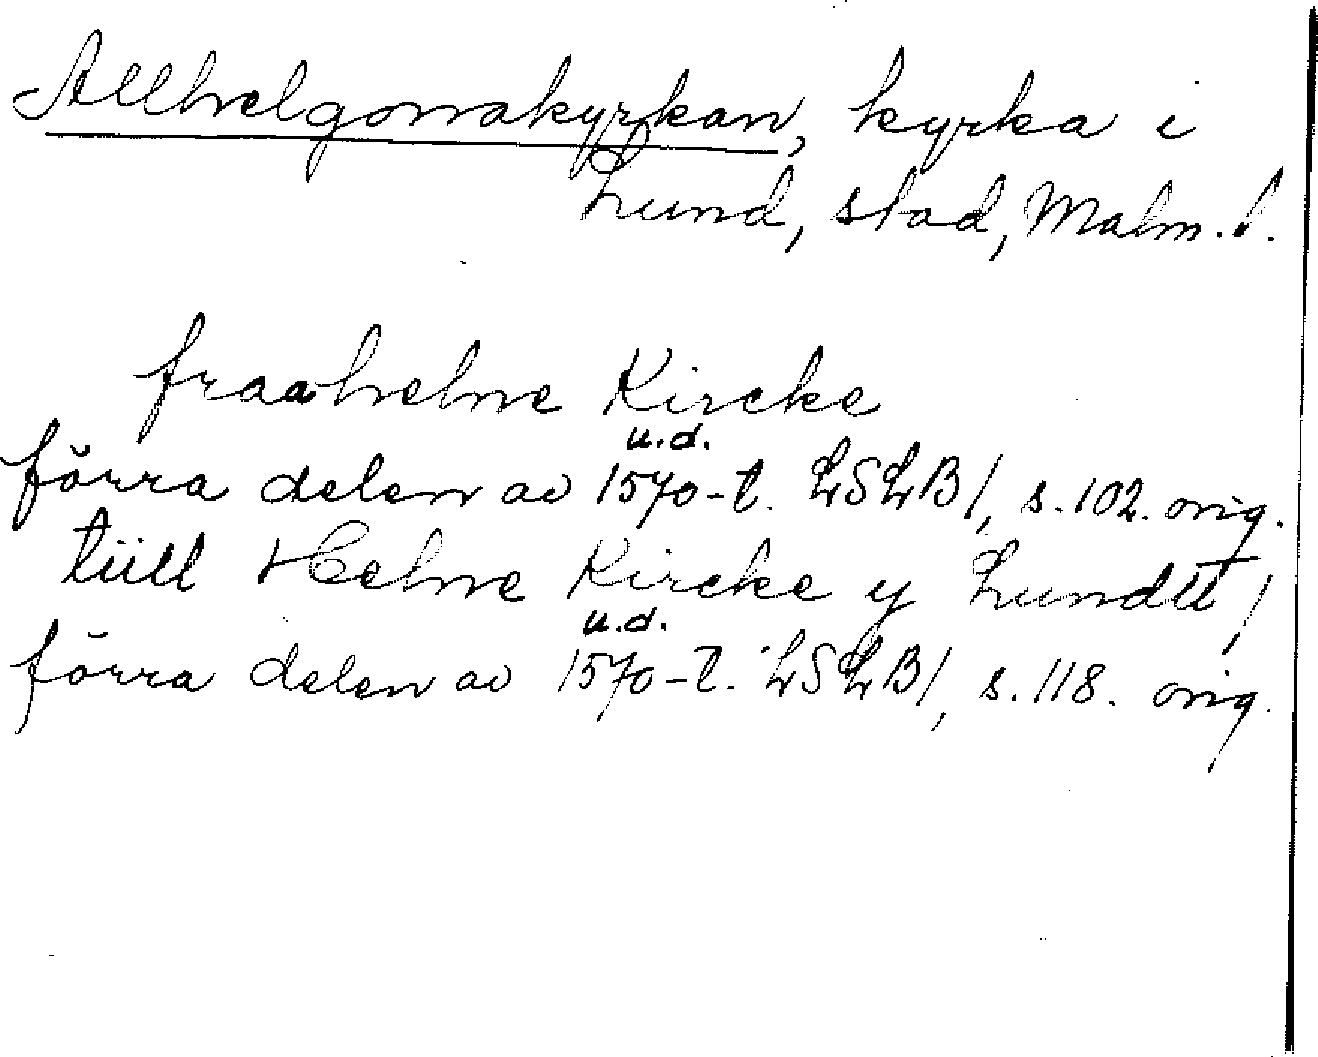 Allhelgonakyrkan, kyrka i
Lund, stad, Malm. l.
fraahelne Kircke
u.d.
förra delen av 1570-t. LSLB1, s. 102. orig.
tüll Helne Kircke y Lundtt/
u.d.
förra delen av 1570-t. LSLB1, s. 118. orig.